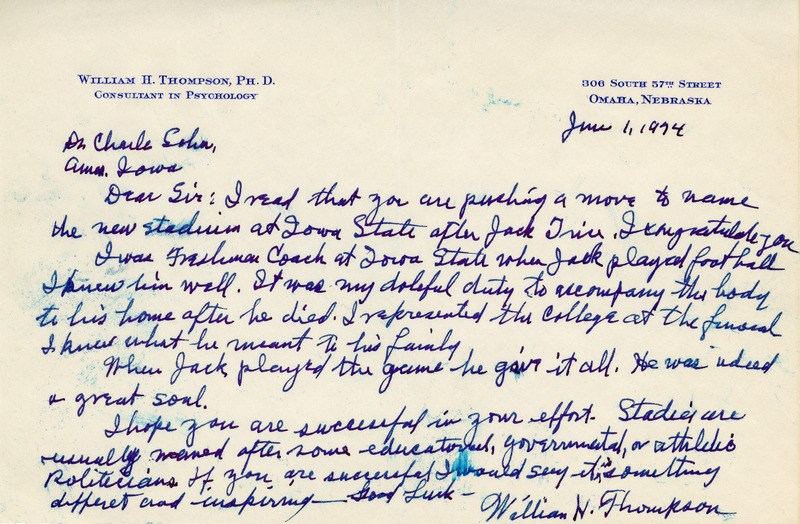 WILLIAM H. THOMPSON, PH. D.
CONSULTANT IN PSYCHOLOGY
306 SOUTH 57TH STREET
OMAHA, NEBRASKA
June 1, 1974
Dr. Charle Sohn,
Ames. Iowa
Dear Sir: I read that you are pushing a move to name
the new stadium at Iowa State after Jack Trice. I congratulate you
I was Freshman Coach at Iowa State when Jack played football
I knew him well. It was my doleful duty to accompany the body
to his home after he died. I represented the College at the funeral
I knew what he meant to his family
When Jack played the game he gave it all. He was indeed
a great soul.
I hope you are successful in your effort. Stadia are
usually named after some educational, governmental, or athletic
Politicians. If you are successful I would say it is something
differet and inspiring — Good Luck —
William H. Thompson